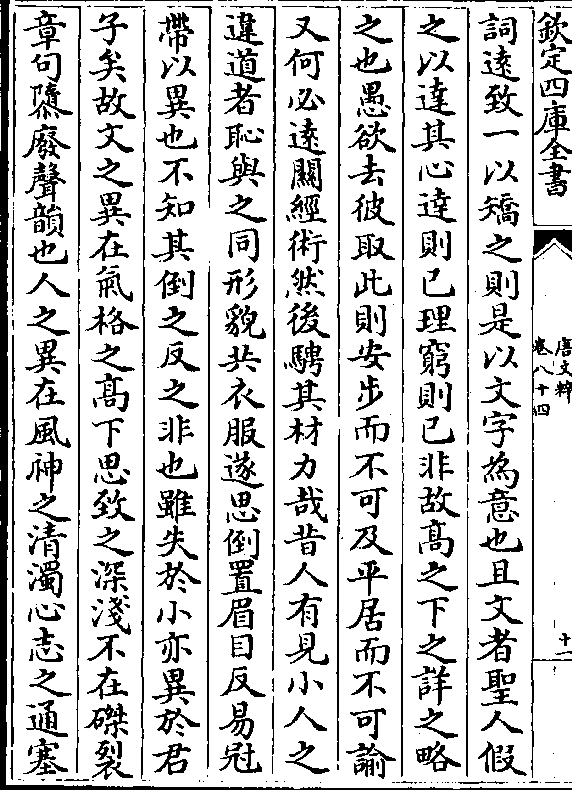 欽定四庫全書
唐文粹
卷八十四
十一
詞逺致一以矯之則是以文字為意也且文者聖人假
之以達其心達則已理窮則已非故髙之下之詳之略
之也愚欲去彼取此則安步而不可及平居而不可諭
又何必逺闗經術然後騁其材力哉昔人有見小人之
違道者恥與之同形貌共衣服遂思倒置眉目反易冠
帶以異也不知其倒之反之非也雖失於小亦異於君
子矣故文之異在氣格之髙下思致之深淺不在磔裂
章句隳廢聲韻也人之異在風神之清濁心志之通塞